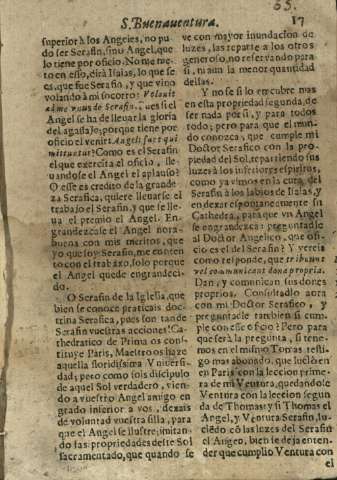 65.
S. Buenaventura. 17
superior à los Angeles, no pu
do ser Serafin, sino Angel, que
lo tiene por oficio. No me me-
to en esso, dirà Isaias, lo que se
es, que fue Serafin, y que vino
volando à mi socorro: Volavit
ad me unus de Serafin. ues si el
Angel se ha de llevar la gloria
del agassajo; porque tiene por
oficio el venir: Angeli sunt qui
mittuntur? Como es el Serafin
el que exercita el oficio, lle-
uandose el Angel el aplauso?
O esse es credito de la grande-
za Serafica, quiere lleuarse el
trabajo el Serafin, y que se lle-
ua el premio el Angel. En
grandezcase el Angel nora-
buena con mis meritos, que
yo que soy Serafin, me conten
to con el trabaxo, solo porque
el Angel quede engrandeci-
do.
O Serafin de la Iglesia, que
bien se conoce praticais doc-
trina Serafica, pues son tan de
Serafin vuestras acciones! Ca-
thedratico de Prima os cons-
tituye Paris, Maestro os haze
aquella floridissima Vniversi-
dad; pero como sois discipulo
de aquel Sol verdadero, vien-
do a vuestro Angel amigo en
grado inferior a vos, dexais
de voluntad vuestra silla, para
que el Angel se ilustre; imitan-
do las propiedades deste Sol
sacramentado, que quando se
ve con mayor inundacion de
luzes, las reparte a los otros
generoso, no reservando para
si, ni aun la menor quantidad
dellas.
Y no se si lo encubre mas
en esta propriedad segunda, de
ser nada por si, y para todos
todo; pero para que el mun-
do conozca, que cumple mi
Doctor Serafico con la pro-
piedad del Sol, repartiendo sus
luzes à los inferiores espiritus,
como ya vimos en la cura, del
Serafin à los labios de Isaias, y
en dexar espontaneamente su
Cathedra, para que vn Angel
se engrandezca: preguntadle
al Doctor Angelico, que ofi-
cio es el del Serafin? Y vereis
como responde, que tribuunt
vel communicant dona propria.
Dan, y comunican sus dones
proprios. Consultadlo aora
con mi Doctor Serafico, y
preguntadle tambien si cum-
ple con esse oficio? Pero para
que serà la pregunta, si tene-
mos en el mismo Tomas testi-
go mas abonado, que lucido en
en Paris con la leccion prime-
ra de mi Ventura, quedandole
Ventura con la leccion segun
da de Thomas: y si Thomas el
Angel, y Ventura Serafin, lu-
ciedo cõ las luzes del Serafin
el Angeo, bien se deja enten-
der que cumplio Ventura con
el